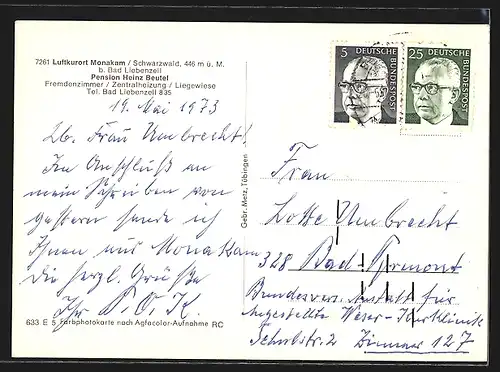 7261 Luftkurort Monakam / Schwarzwald, 446 m ü. M.
b. Bad Liebenzell
Pension Heinz Beutel
Fremdenzimmer / Zentralheizung / Liegewiese
Tel. Bad Liebenzell 835
19. Mai 1973
Lb. Frau Umbrecht!
Im Anschluß an
mein Schreiben von
gestern sende ich
Ihnen aus Monakam
die herzl. Grüße
Ihr P.O.K.
633 E 5 Farbphotokarte nach Agfacolor-Aufnahme RC
Gebr. Metz, Tübingen
5 DEUTSCHE BUNDESPOST
25 DEUTSCHE BUNDESPOST
Frau
Lotte Umbrecht
328 Bad Pyrmont
Bundesvers. Anstalt für
Angestellte Weser-Klinik
Schulstr. 2 Zimmer 127